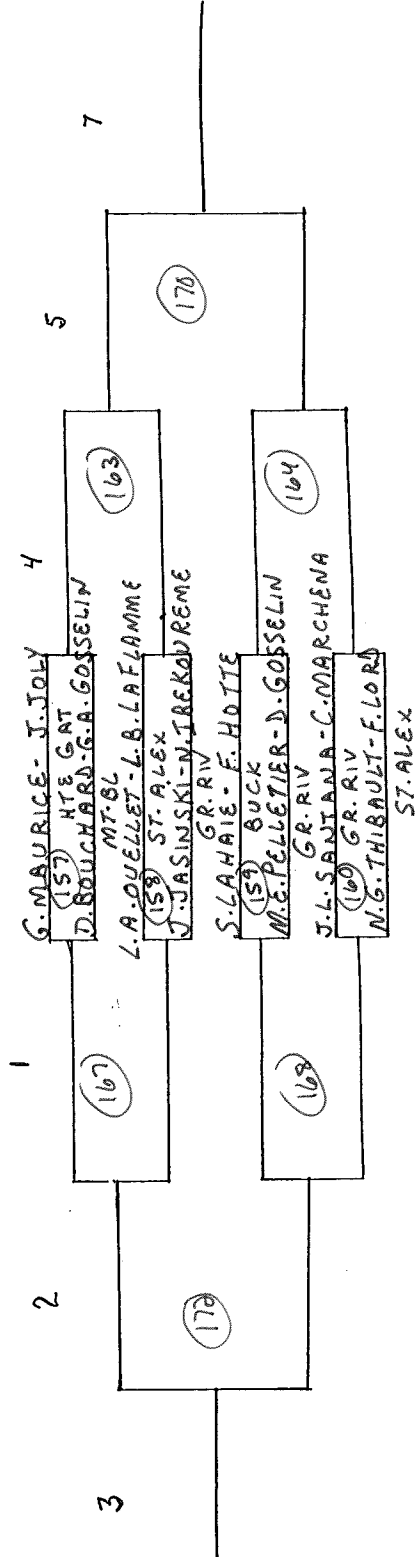 3 2 1 4 5 7
G. MAURICE - J. JOLY
157 HTE GAT
D. BOUCHARD - G.A. GOSSELIN
MT-BL
L.A. OUELLET - L.B. LAFLAMME
158 ST. ALEX
J. JASINSKI - N. TREKOUREME
GR. RIV
S. LAHAIE - F. HOTTE
159 BUCK
M.E. PELLETIER - D. GOSSELIN
GR. RIV
J.L. SANTANA - C. MARCHENA
160 GR. RIV
N.G. THIBAULT - F. LORD
ST. ALEX
167
163
172
170
168
164